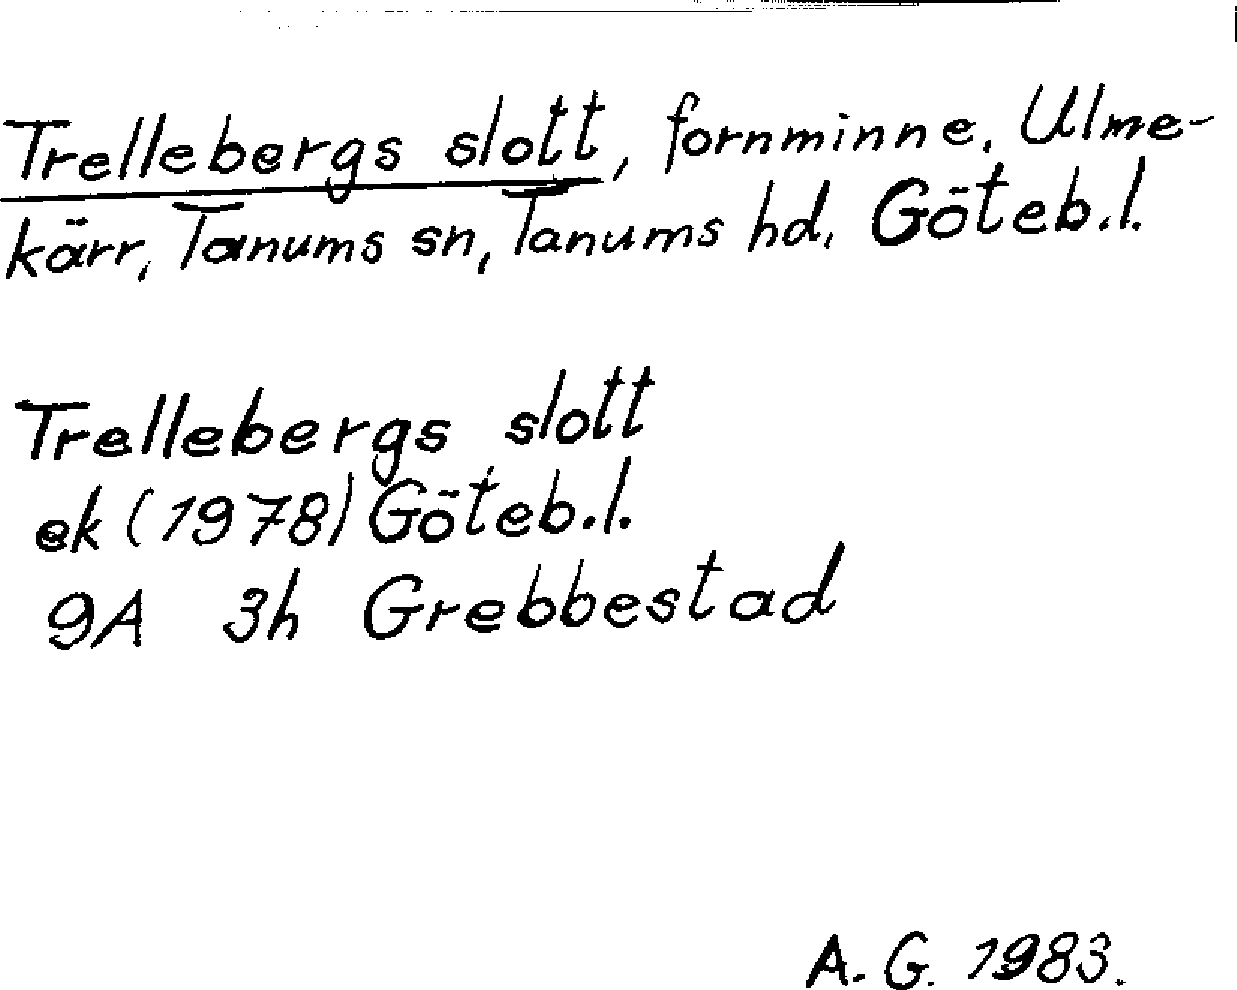 Trellebergs slott, fornminne, Ulme-
kärr, Tanums sn, Tanums hd, Göteb.l.
Trellebergs slott
ek (1978) Göteb.l.
9A 3h Grebbestad
A. G. 1983.